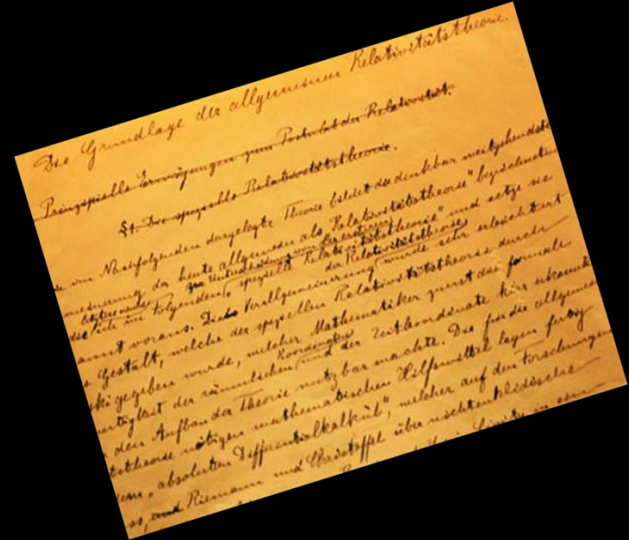 Die Grundlage der allgemeinen Relativitätstheorie.
Prinzipielle Erwägungen zum Postulat der Relativität.
§1. Die spezielle Relativitätstheorie.
im Nachfolgenden dargelegte Theorie bildet die denkbar weitgehendste
der heute allgemein als „Relativitätstheorie" bezeichneten
letztere zur Unterscheidung von der ersteren
ich im Folgenden „spezielle Relativitätstheorie" und setze sie
der Relativitätstheorie
voraus. Die Verallgemeinerung wurde sehr erleichtert
Gestalt, welche der speziellen Relativitätstheorie durch
gegeben wurde, welcher Mathematiker zuerst die formale
der räumlichen Koordinaten und der Zeitkoordinate klar erkannte
den Aufbau der Theorie nutzbar machte. Die für die allgemeine
nötigen mathematischen Hilfsmittel lagen fertig
„absoluten Differentialkalkül", welcher auf den Forschungen
und Riemann und Christoffel über nichteuklidische